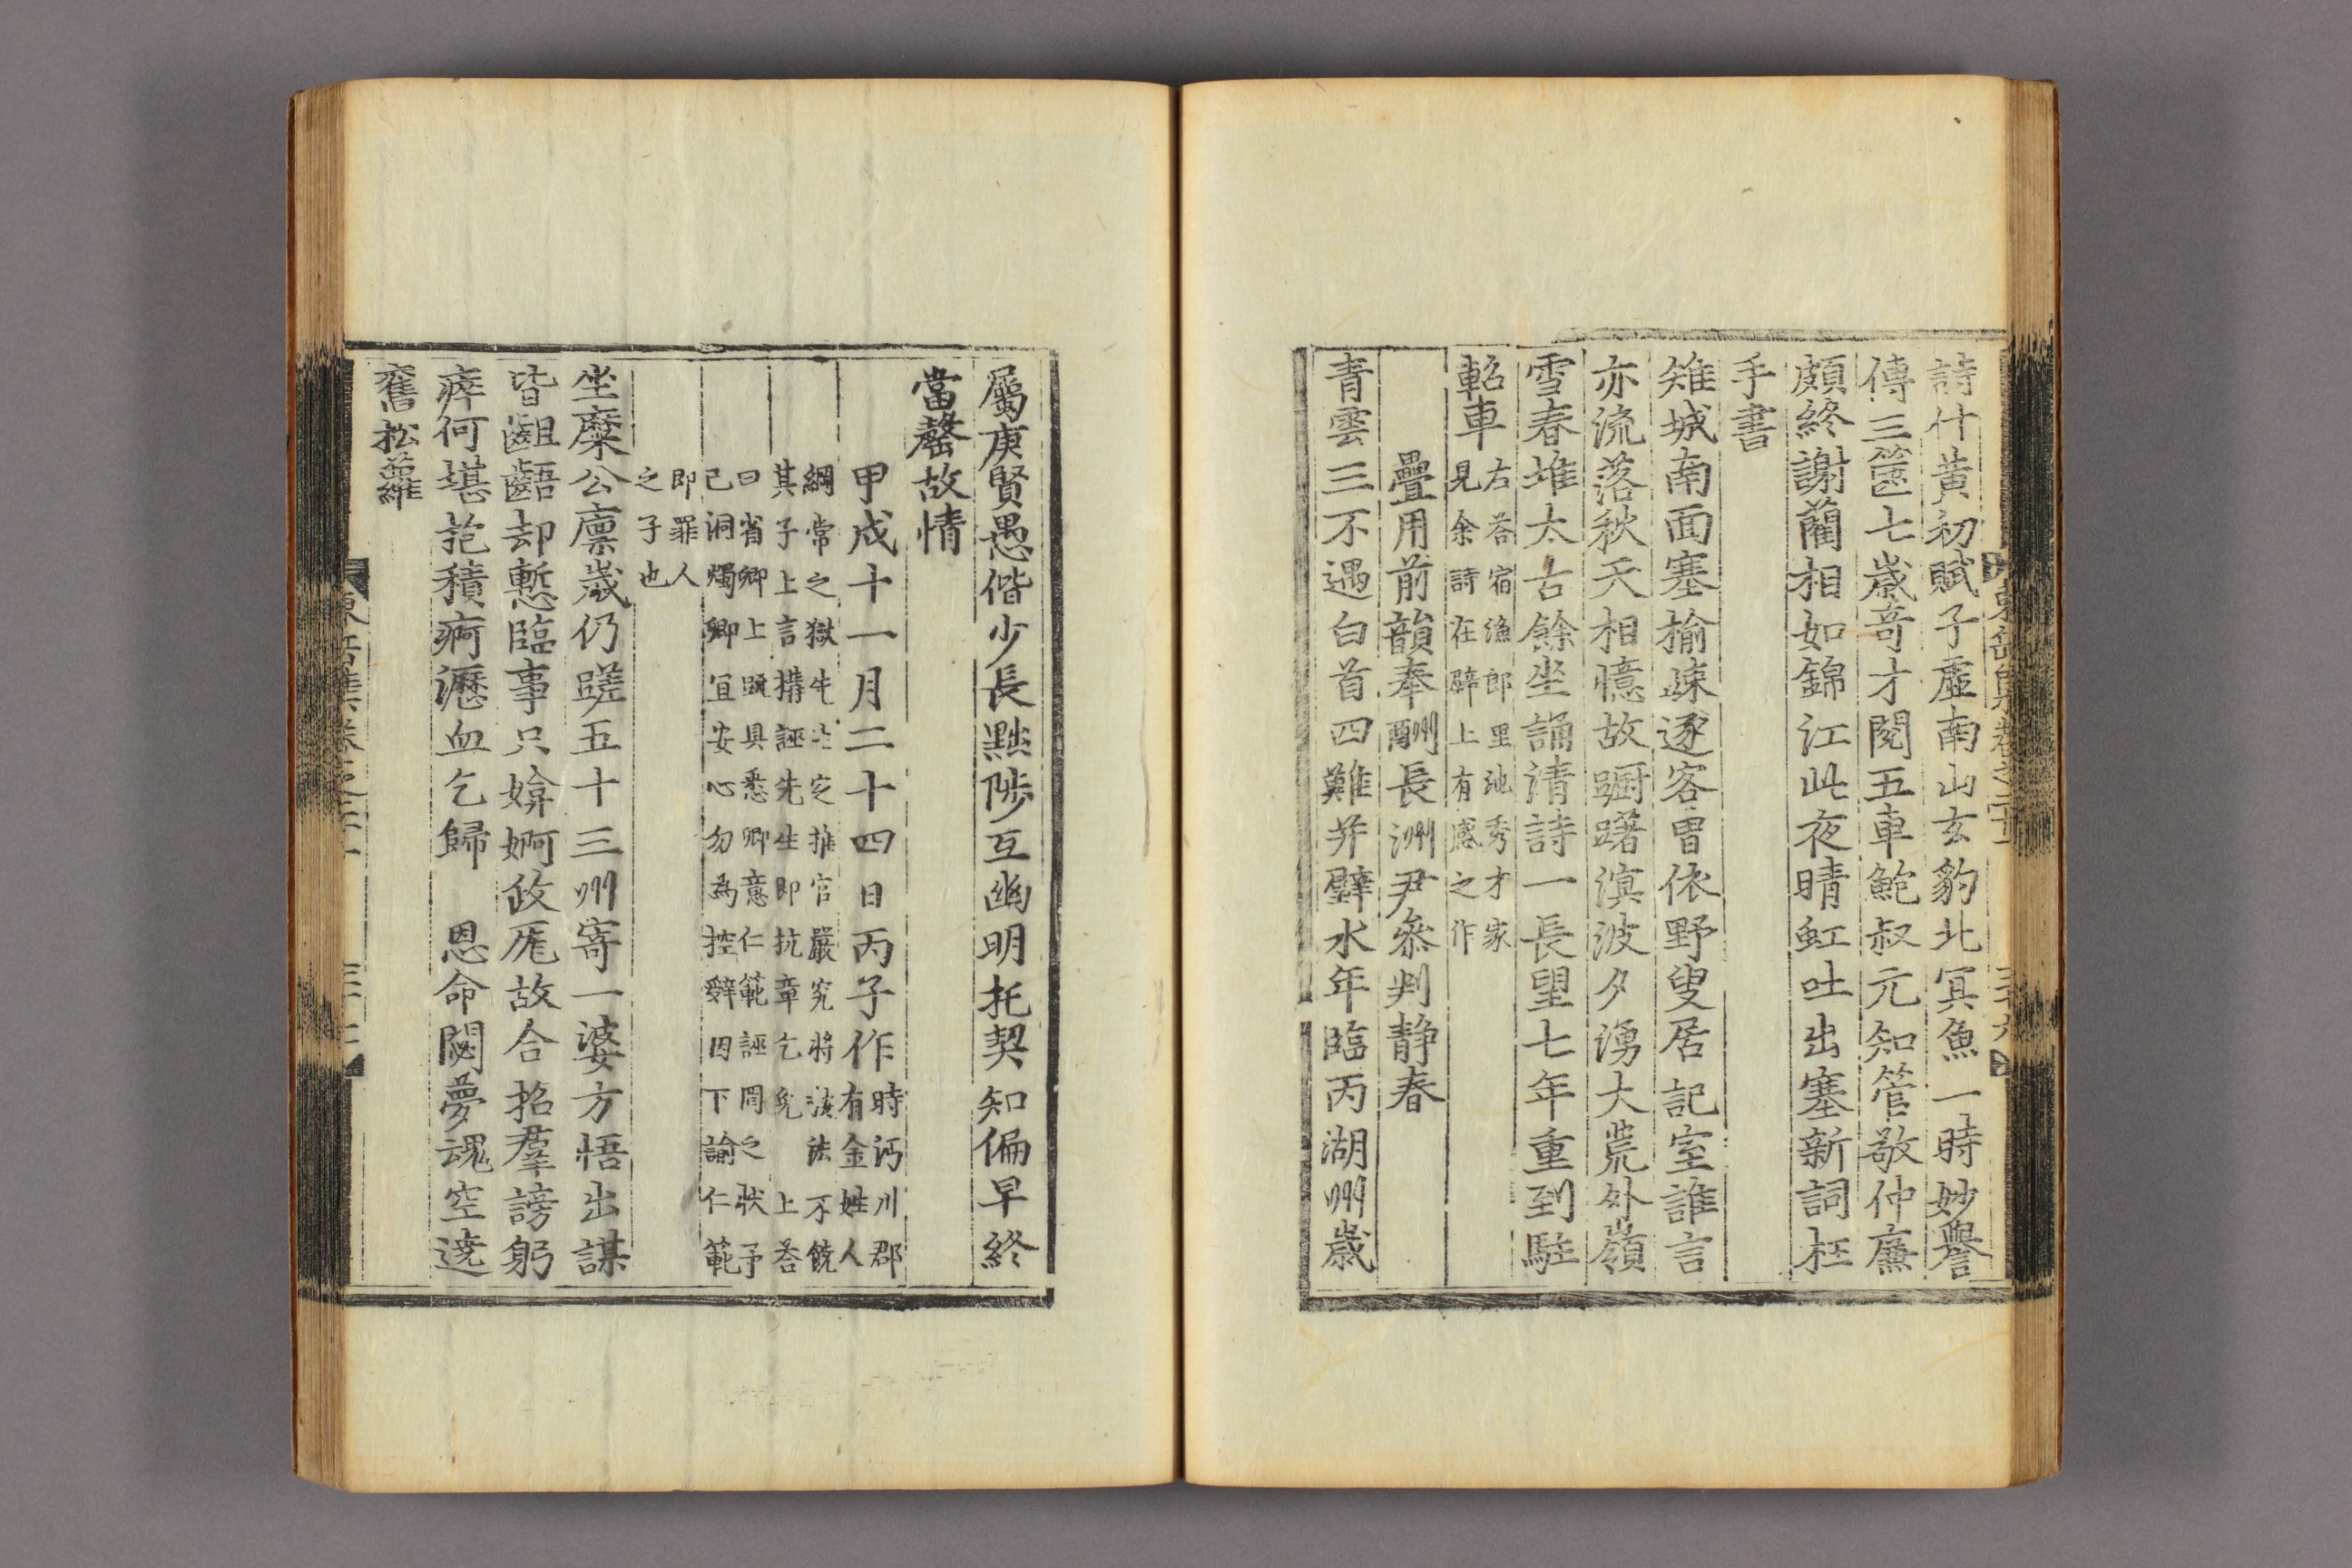 詩什黃初賦子虛南山玄豹北冥魚一時妙譽
傳三篋七歲奇才閱五車鮑叔元知管敬仲廉
頗終謝藺相如錦江此夜晴虹吐出塞新詞枉
手書
雉城南面塞揄踈逐客曾依野叟居記室誰言
亦流落秋天相憶故躕躇溟波夕湧大荒外嶺
雪春堆太古餘坐誦淸詩一長望七年重到駐
軺車
右荅宿漁郎里池秀才家
見余詩在壁上有感之作
疊用前韻奉酬長洲尹叅判靜春
靑雲三不遇白首四難并璧水年臨丙湖州歲
屬庚賢愚偕少長黜陟互幽明托契知偏早終
當罄故情
甲戌十一月二十四日丙子作
時沔川郡
有金姓人
綱常之獄先生定推官嚴究將法不饒
其子上言搆誣先生卽抗章乞免 上荅
曰省卿上䟽具悉卿意仁範誣罔之狀予
已洞燭卿宜安心勿爲控辭因下諭仁範
卽罪人
之子也
坐糜公廩歲仍蹉五十三州寄一婆方悟出謀
皆齟齬却慙臨事只媕婀政厖故合招羣謗躬
瘁何堪苞積痾瀝血乞歸 恩命閟夢魂空遶
舊松蘿